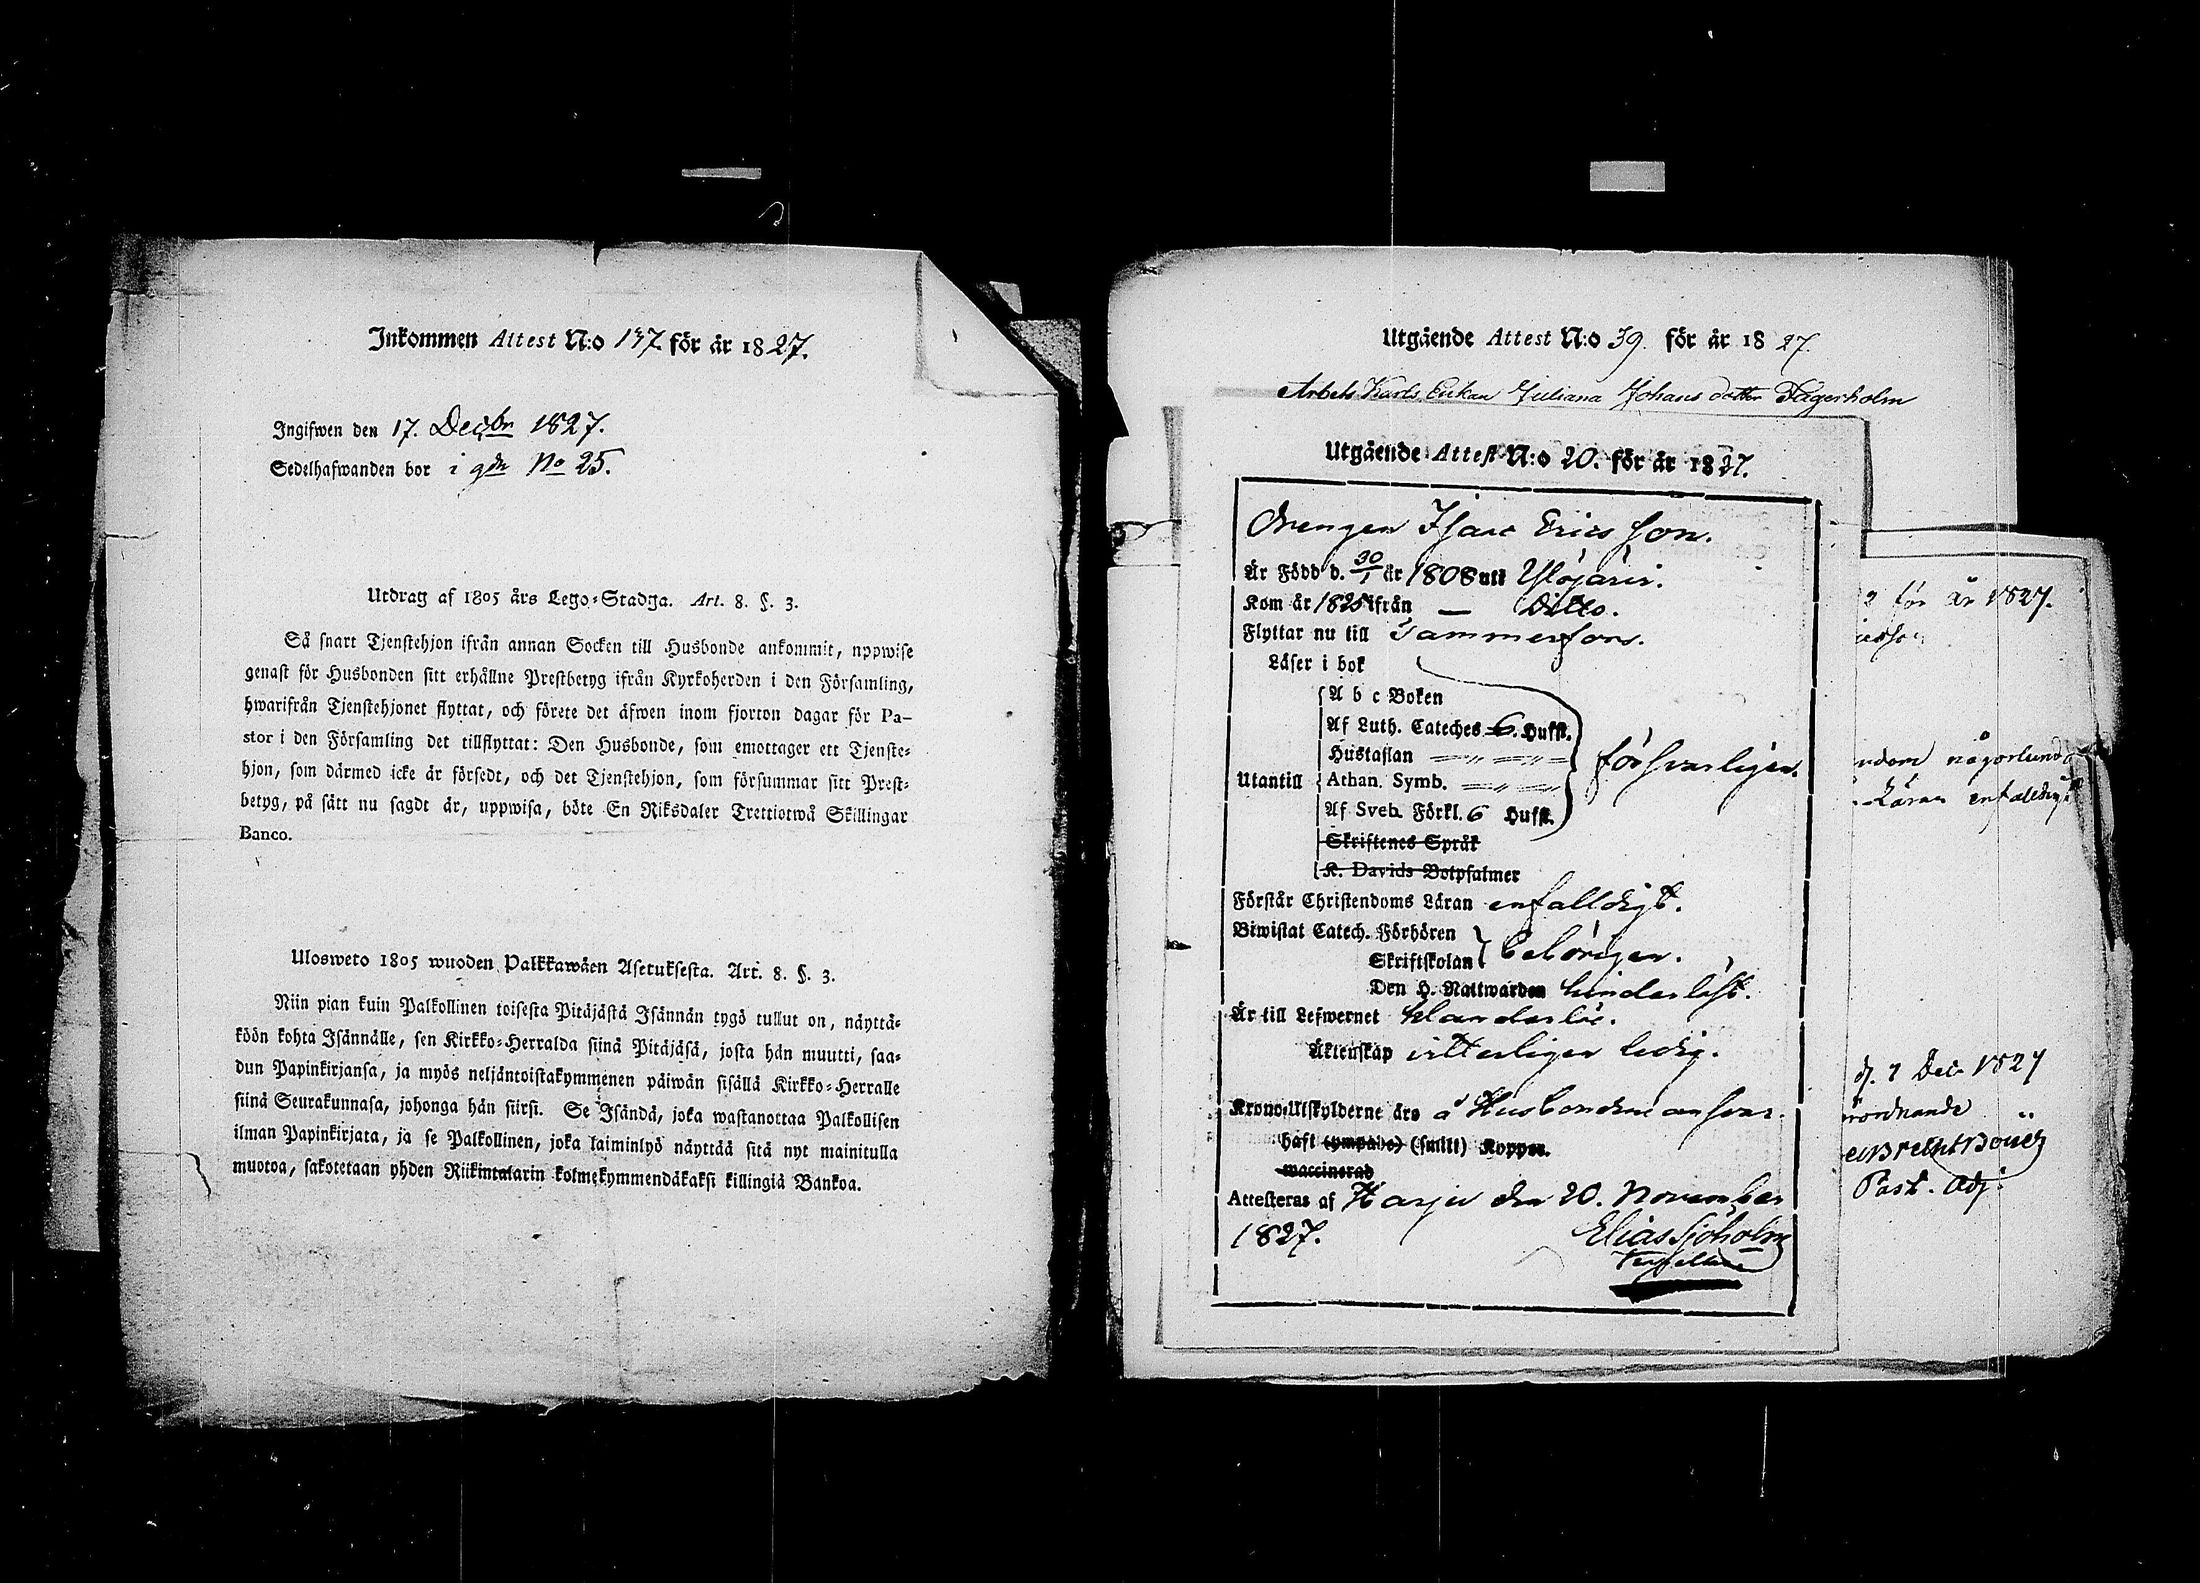 Inkommen Attest N:o 137 för år 1827.
Ingifwen den 17. Decbr 1827.
Sedelhafwanden bor i gdn No 25.
Utdrag af 1805 års Lego-Stadga. Art. 8. §. 3.
Så snart Tjenstehjon ifrån annan Socken till Husbonde ankommit, uppwise
genast för Husbonden sitt erhållne Prestbetyg ifrån Kyrkoherden i den Församling,
hwarifrån Tjenstehjonet flyttat, och förete det äfwen inom fjorton dagar för Pa-
stor i den Församling det tillflyttat: Den Husbonde, som emottager ett Tjenste-
hjon, som därmed icke är försedt, och det Tjenstehjon, som försummar sitt Prest-
betyg, på sätt nu sagdt är, uppwisa, böte En Riksdaler Trettiotwå Skillingar
Banco.
Ulosweto 1805 wuoden Palkkawäen Asetuksesta. Art. 8. §. 3.
Niin pian kuin Palkollinen toisesta Pitäjästä Isännän tygö tullut on, näyttä-
köön kohta Isännälle, sen Kirkko-Herralda siinä Pitäjäsä, josta hän muutti, saa-
dun Papinkirjansa, ja myös neljäntoistakymmenen päiwän sisällä Kirkko-Herralle
siinä Seurakunnasa, johonga hän siirsi. Se Isändä, joka wastanottaa Palkollisen
ilman Papinkirjata, ja se Palkollinen, joka laiminlyö näyttää sitä nyt mainitulla
muotoa, sakotetaan yhden Riikintalarin kolmekymmendäkaksi killingiä Bankoa.
Utgående Attest N:o 39. för år 1827.
Arbets Karls Enkan Juliana Johans dotter Fagerholm
Utgående Attest N:o 20. för år 1827.
Drengen Isaac Ericsson.
Är Född d. 30/1 år 1808 uti Ylöjärvi.
Kom år 1825 ifrån — Ditto.
Flyttar nu till Tammerfors.
Läser i bok
A b c Boken
Af Luth. Cateches 6. Hufst.
Hustaflan
försvarligen.
Utantill Athan. Symb.
Af Sveb. Förkl. 6 Hufst.
Skriftenes Språk
K. Davids Botpsalmer
Förstår Christendoms Läran enfalldigt.
Biwistat Catech. Förhören
Skriftskolan behörigen.
Den H. Nattwarden hinderlöst.
Är till Lefwernet
Äktenskap vitterligen ledig.
Krono-Utskylderne äro å Husbondens ansvar.
haft (ympade) (smitt) Koppor.
waccinerad
Attesteras af Harju den 20. November
1827. Elias Sjöholm
2 för år 1827.
ndom någorlunda
Läran enfaldigt
d. 7 Deb 1827
Past. Adj.